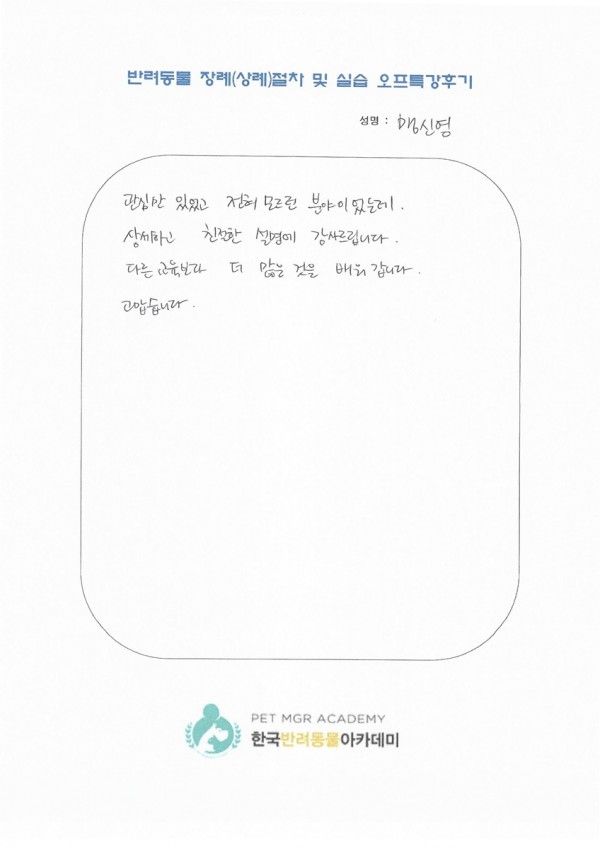 반려동물 장례(상례)절차 및 실습 오프특강후기
성명 : 맹신영
관심만 있었고 전혀 모르던 분야이었는데.
상세하고 친절한 설명에 감사드립니다.
다른 교육보다 더 많은 것을 배워 갑니다.
고맙습니다.
PET MGR ACADEMY
한국반려동물아카데미